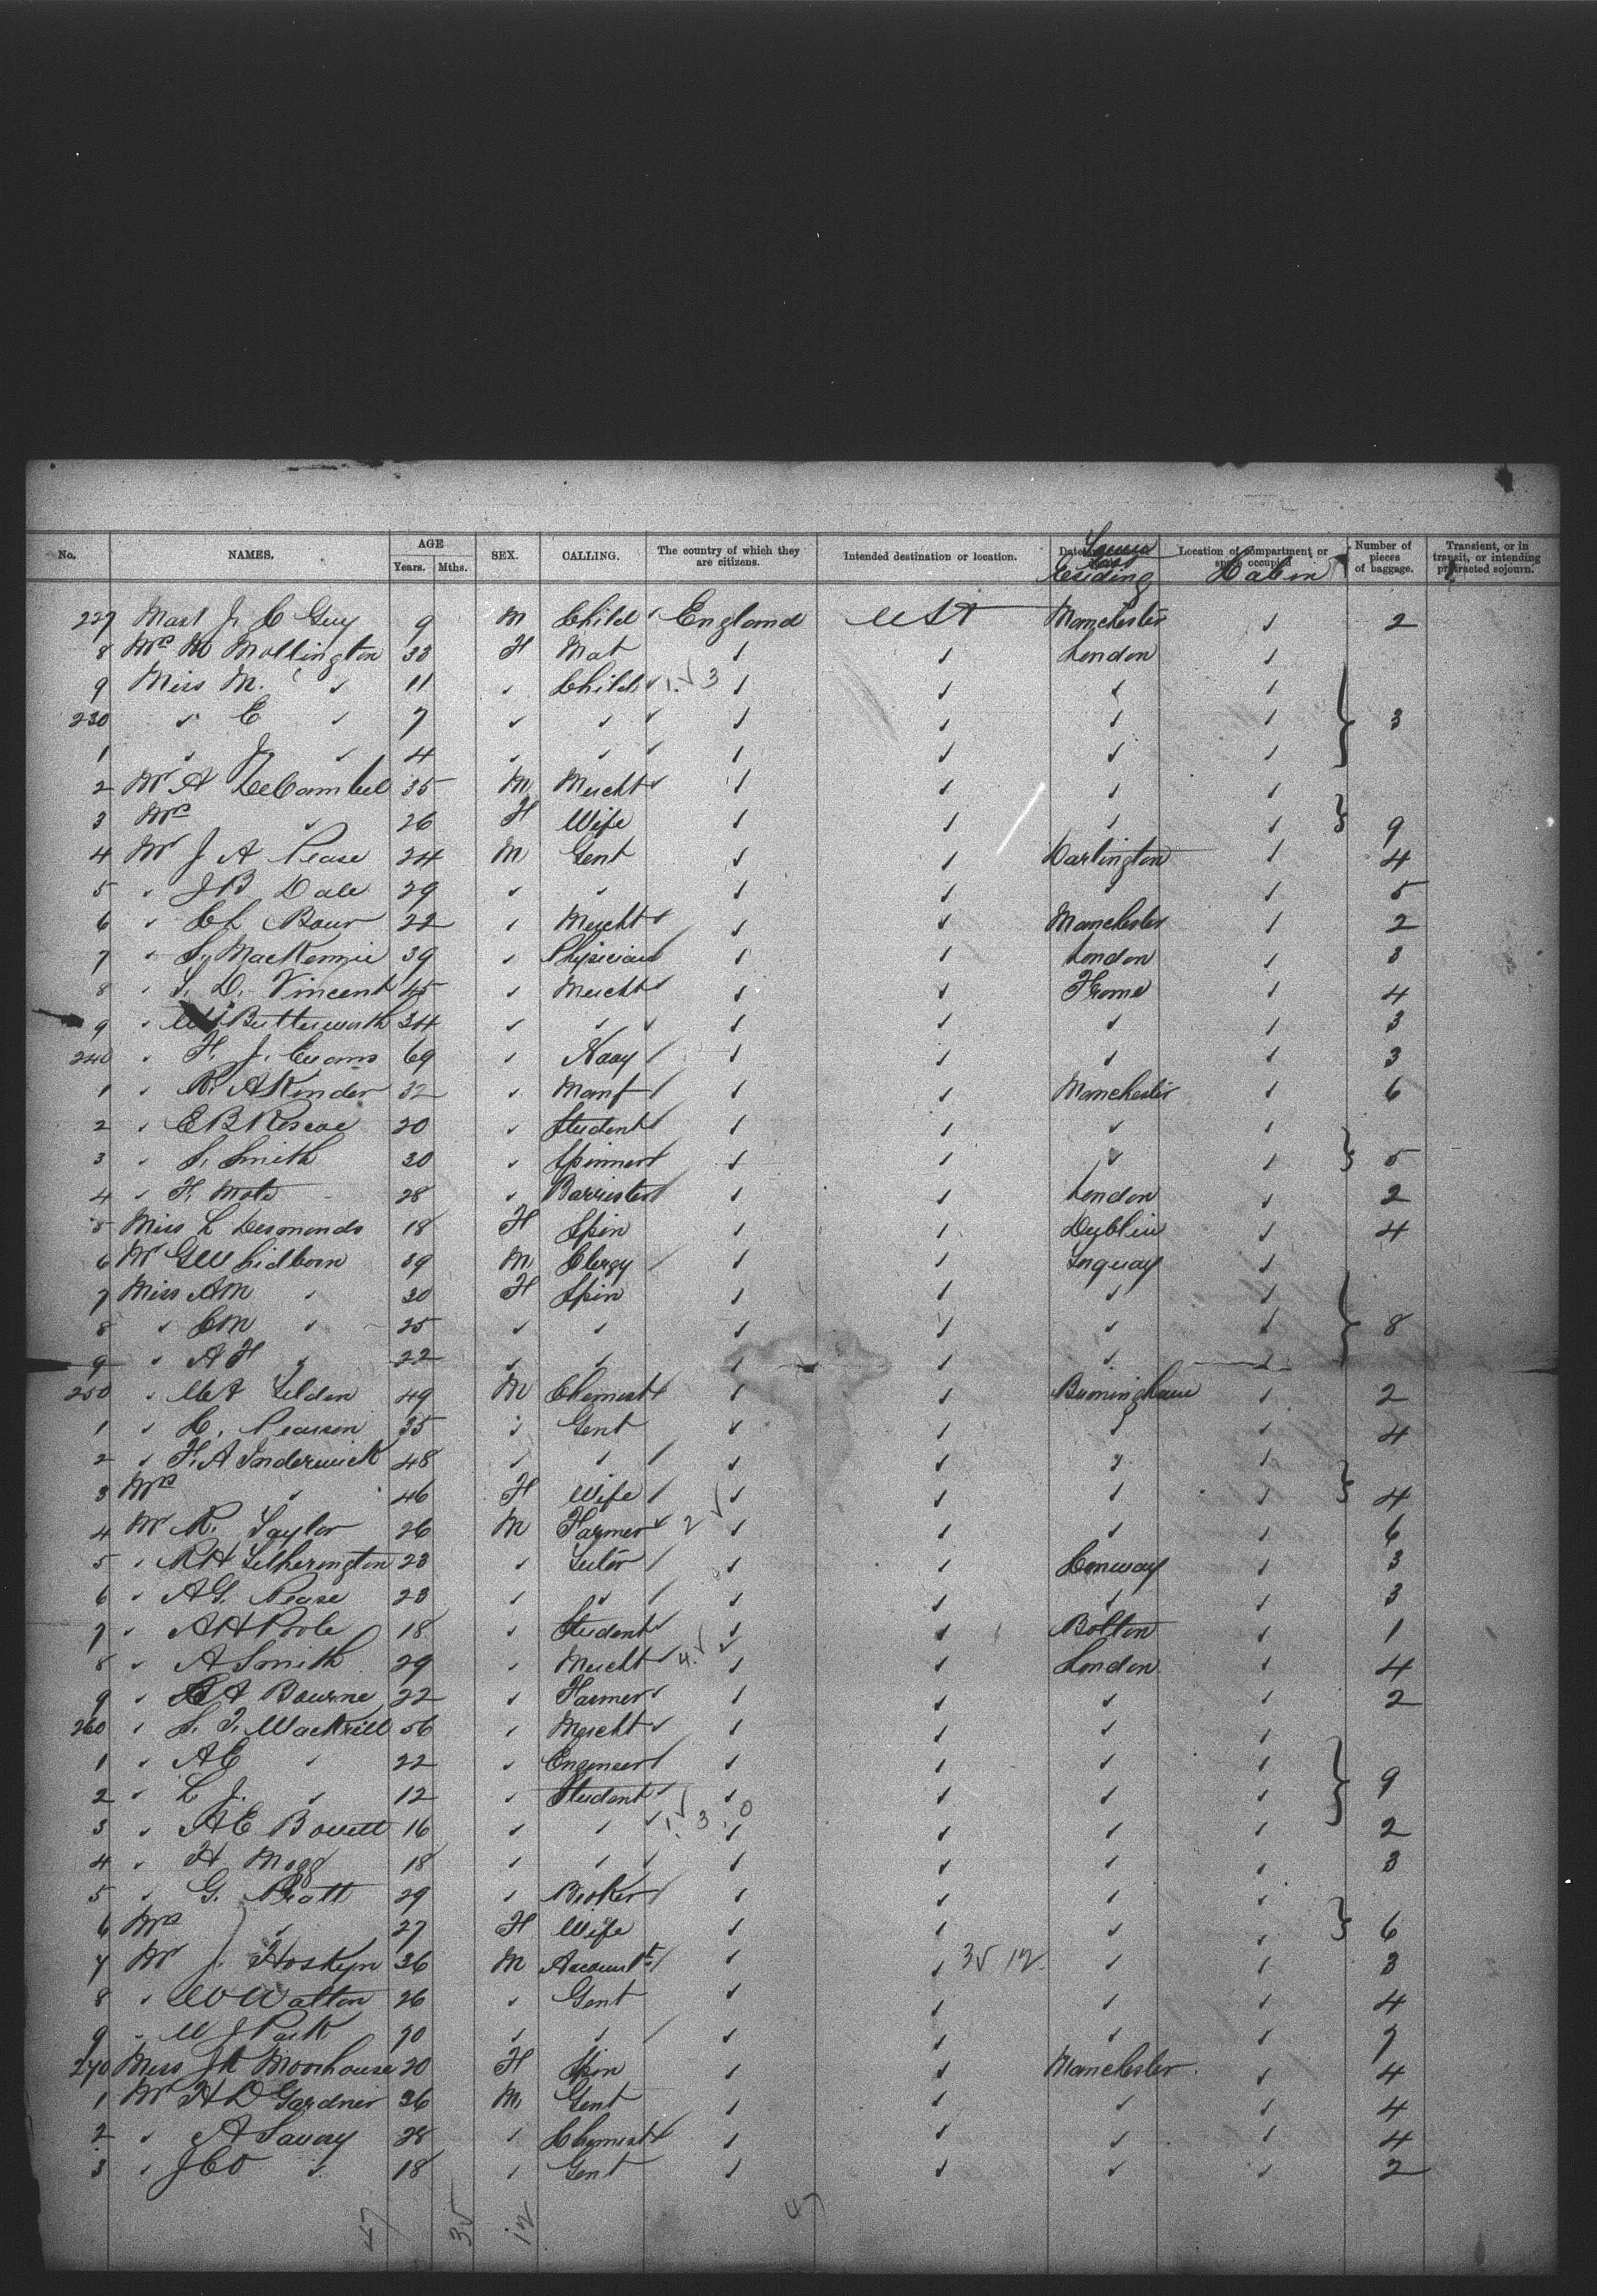 No. NAMES. AGE Years. Mths. SEX. CALLING. The country of which they are citizens. Intended destination or location. Date Last Residing Location of compartment or space occupied Cabin Number of pieces of baggage. Transient, or in transit, or intending protracted sojourn.
227 Mast J. C Guy 9 M Child England USA Manchester 2
8 Mrs M Mollington 33 F Mat London
9 Miss M. " 11 " Child 1. 3
230 " E " 7 " " 3
1 " J. " 4 " "
2 Mr A 35 M Mercht
3 Mrs " 26 F Wife 9
4 Mr J A Pease 24 M Gent Darlington 4
5 " J B Dale 29 " " " 5
6 " 22 " Mercht Manchester 2
7 " S. MacKenzie 39 " Physician London 3
8 " S. D. Vincent 45 " Mercht Frome 4
9 " W Butterworth 34 " " " 3
240 " F. J. Evans 69 " Navy " 3
1 " R. A Kinder 32 " Manf Manchester 6
2 " E B Roscoe 20 " Student "
3 " S. Smith 30 " Spinner " 5
4 " F. Mote 28 " Barrister London 2
5 Miss L Desmonds 18 F Spin Dublin 4
6 Mr G W Lidborn 39 M Clergy Torquay
7 Miss A M " 30 F Spin "
8 " E M " 25 " " " 8
9 " A F " 22 " " "
250 " W A Tilden 49 M Chemist Birmingham 2
1 " H. Pearson 35 " Gent " 4
2 " F. A Inderwick 48 " " "
3 Mrs " 46 F Wife " 4
4 Mr R. Taylor 26 M Farmer 2 " 6
5 " R H Letherington 23 " Tutor Conway 3
6 " A G. Pease 23 " " " 3
7 " A H Poole 18 " Student Bolton 1
8 " A Smith 29 " Mercht 4. London 4
9 " A Bourne 22 " Farmer " 2
260 " S. T. Mackrill 56 " Mercht "
1 " A E " 22 " Engineer "
2 " L J. " 12 " Student " 9
3 " A E Bovell 16 " " 1. 3. 0 " 2
4 " H. Mogg 18 " " " 3
5 " G. Pratt 29 " Broker "
6 Mrs " 27 F Wife " 6
7 Mr J. Hoskyn 36 M Accountt 35 12 " 3
8 " W Walton 26 " Gent " 4
9 " W J Park 30 " " " 7
270 Miss J A Moorhouse 20 F Spin Manchester 4
1 Mr H D Gardner 36 M Gent " 4
2 " A Savoy 28 " Chemist " 4
3 " J C O " 18 " Gent " 2
47 35 12 47